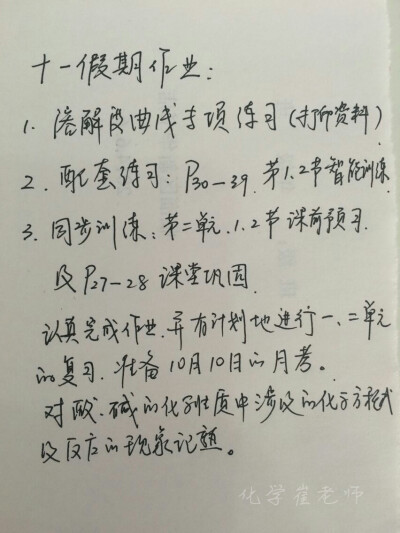 十一假期作业：
1. 溶解度曲线专项练习（打印资料）
2. 配套练习：P30—39. 第1.2节智能训练
3. 同步训练：第二单元.1.2节课前预习.
及P27-28课堂巩固.
认真完成作业.并有计划地进行一、二单元
的复习.准备10月10日的月考。
对酸、碱的化学性质中涉及的化学方程式
及反应的现象记熟。
化学崔老师